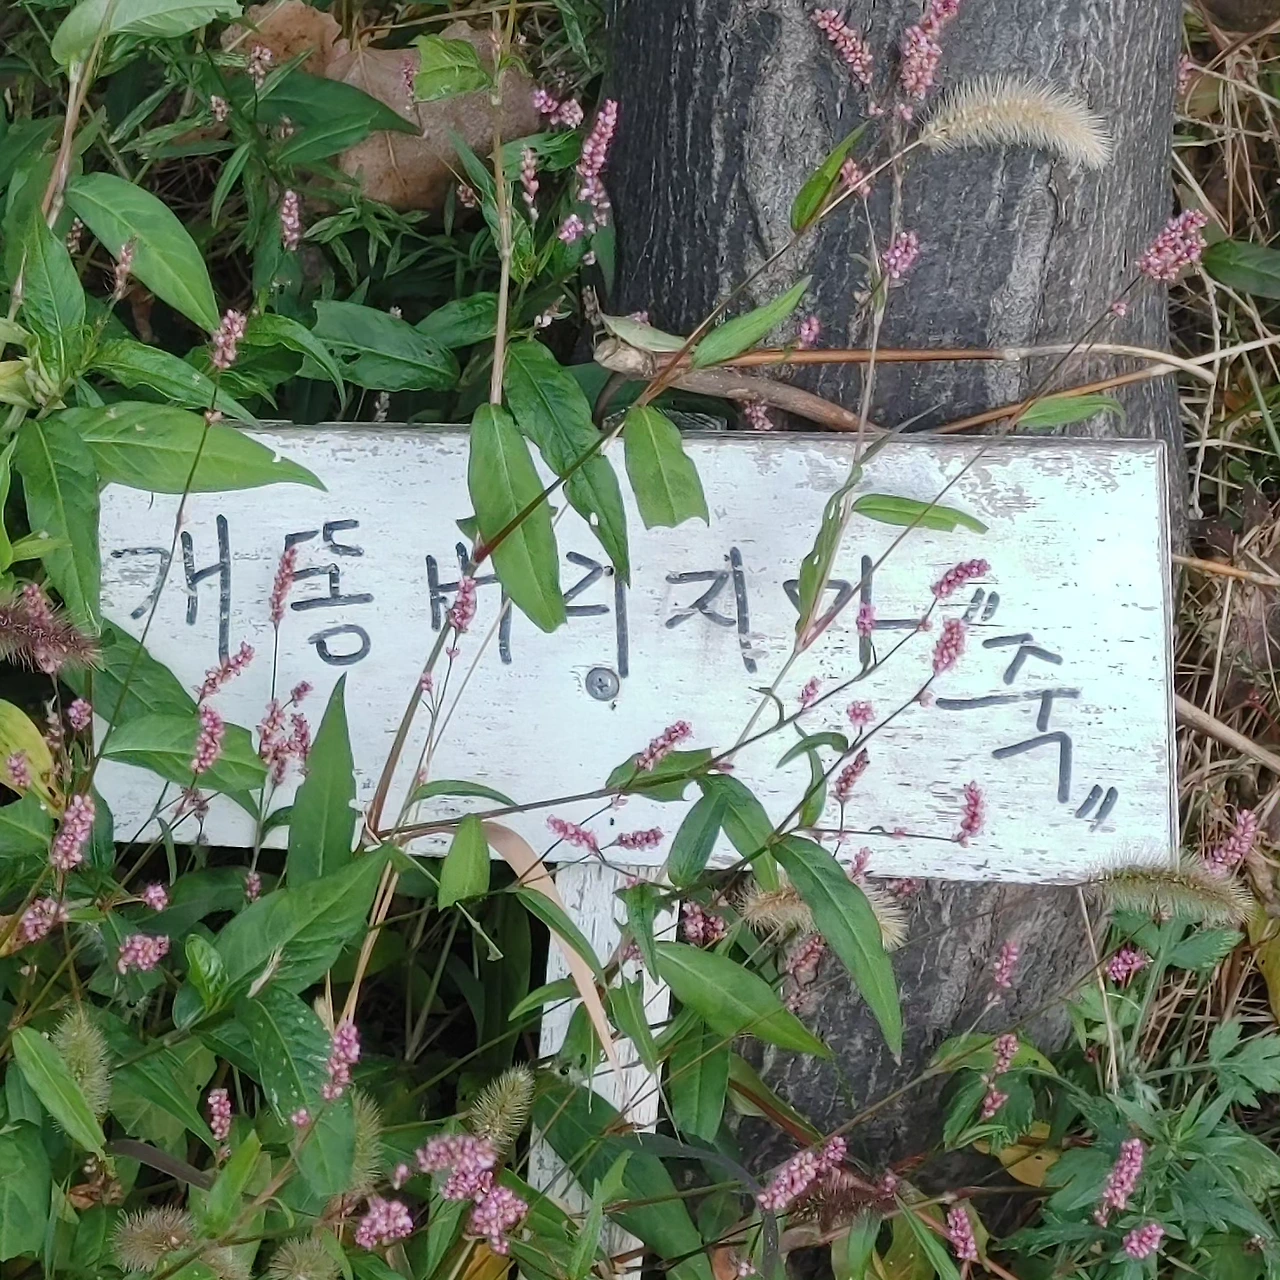 개똥 버리지 마 "죽"